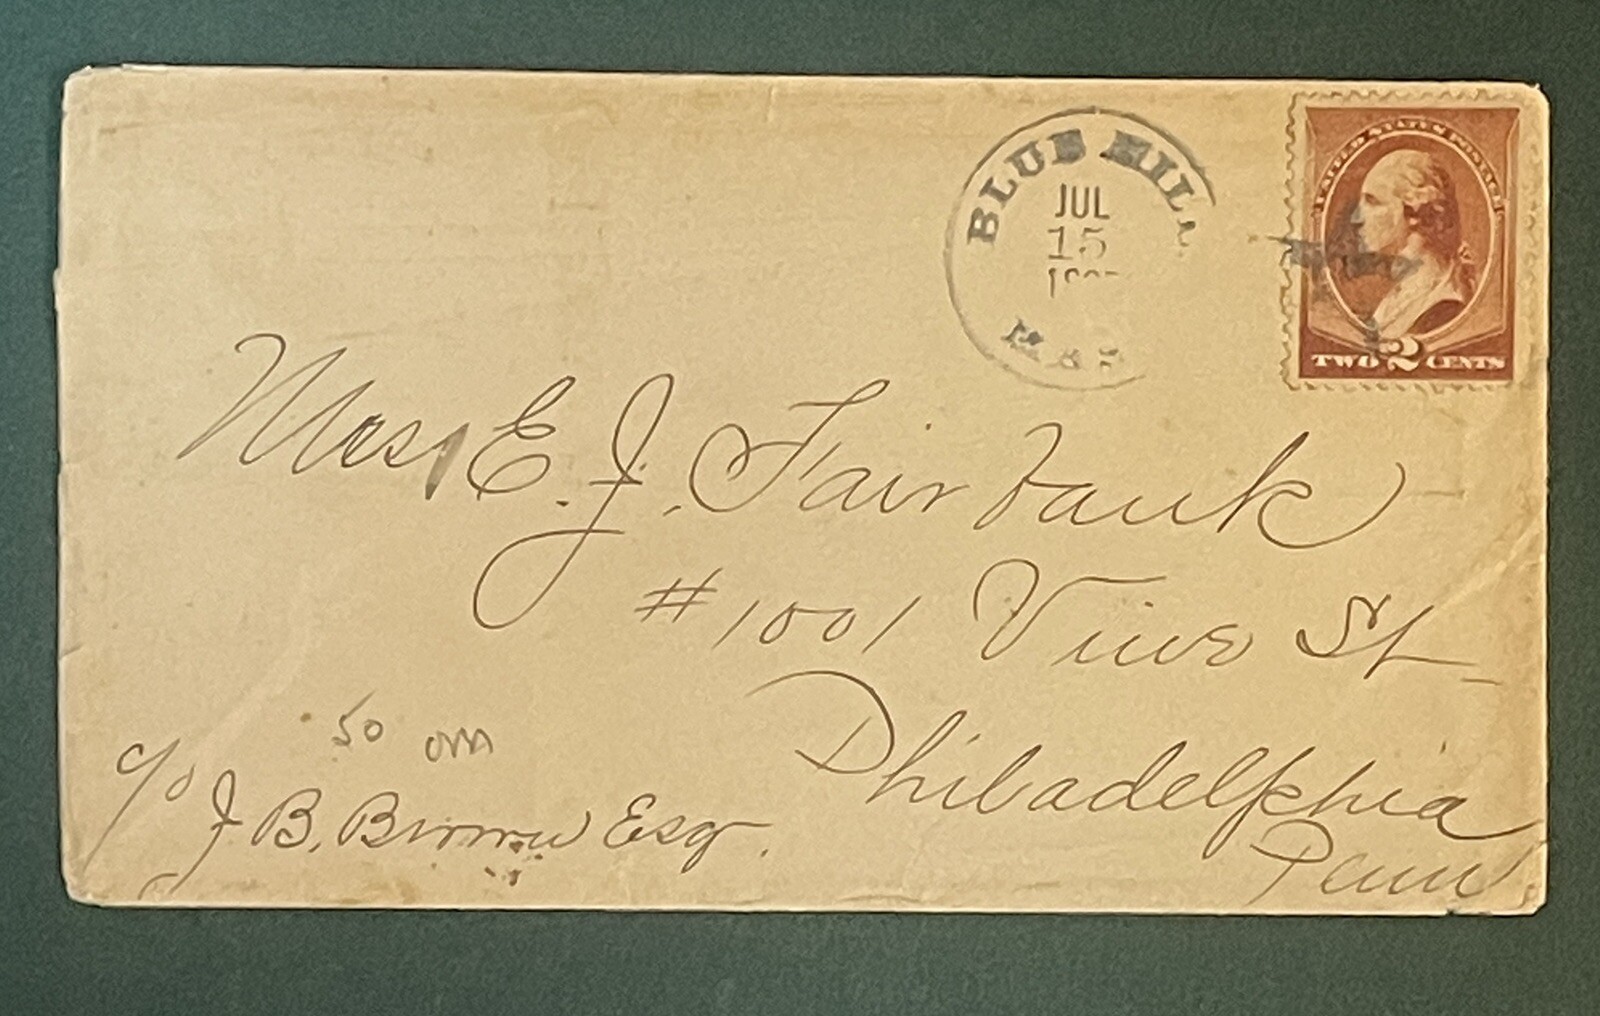 BLUE HILL
JUL
15
UNITED STATES POSTAGE
TWO 2 CENTS
Mrs. E. J. Fairbank
#1001 Vine St
Philadelphia
Penn
50
c/o J B. Brown Esq.